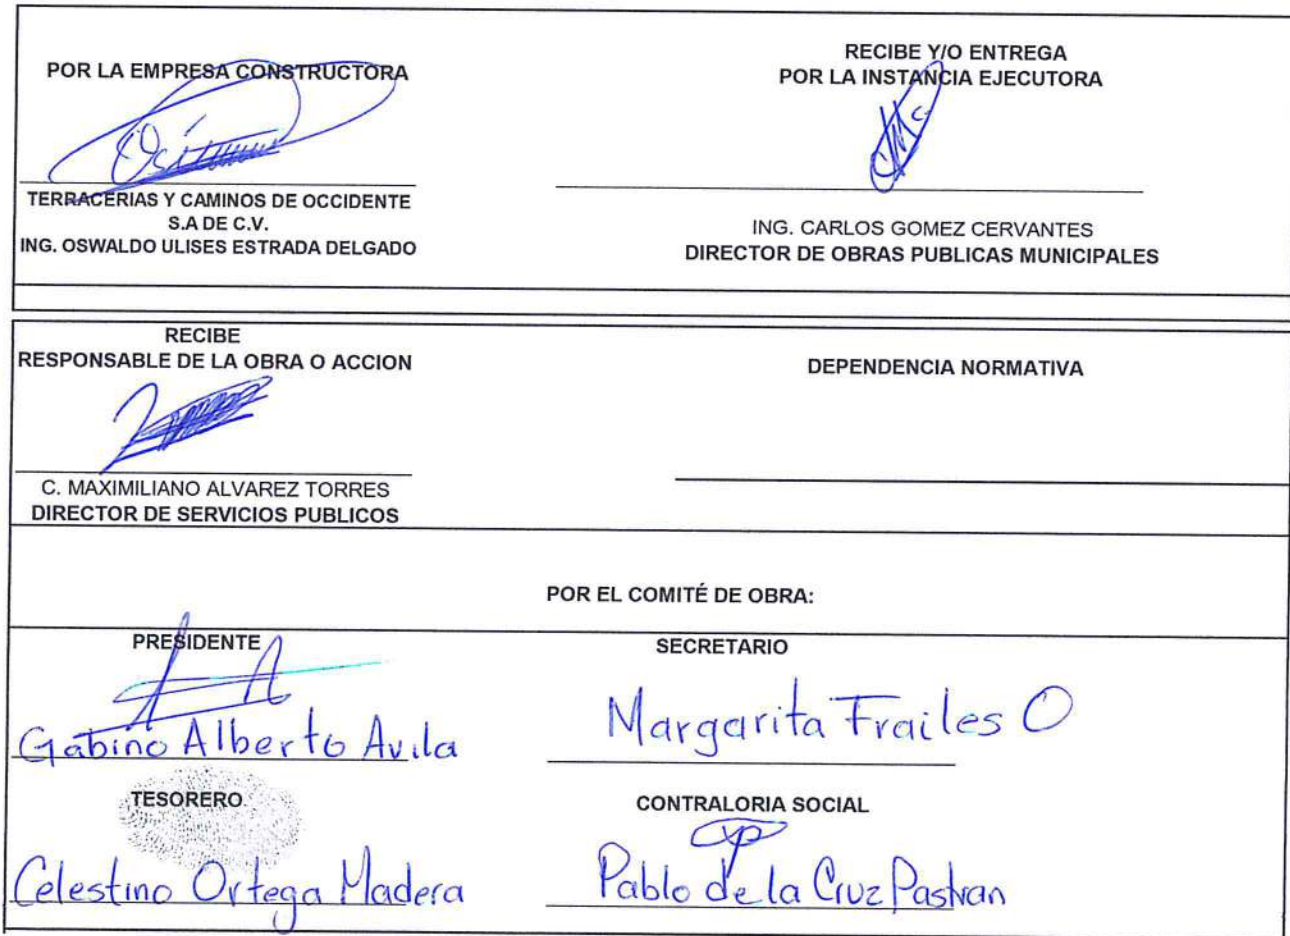 POR LA EMPRESA CONSTRUCTORA
TERRACERIAS Y CAMINOS DE OCCIDENTE
S.A DE C.V.
ING. OSWALDO ULISES ESTRADA DELGADO
RECIBE Y/O ENTREGA
POR LA INSTANCIA EJECUTORA
ING. CARLOS GOMEZ CERVANTES
DIRECTOR DE OBRAS PUBLICAS MUNICIPALES
RECIBE
RESPONSABLE DE LA OBRA O ACCION
C. MAXIMILIANO ALVAREZ TORRES
DIRECTOR DE SERVICIOS PUBLICOS
DEPENDENCIA NORMATIVA
POR EL COMITÉ DE OBRA:
PRESIDENTE
Gabino Alberto Avila
SECRETARIO
Margarita Frailes O
TESORERO
Celestino Ortega Madera
CONTRALORIA SOCIAL
Pablo de la Cruz Pastran